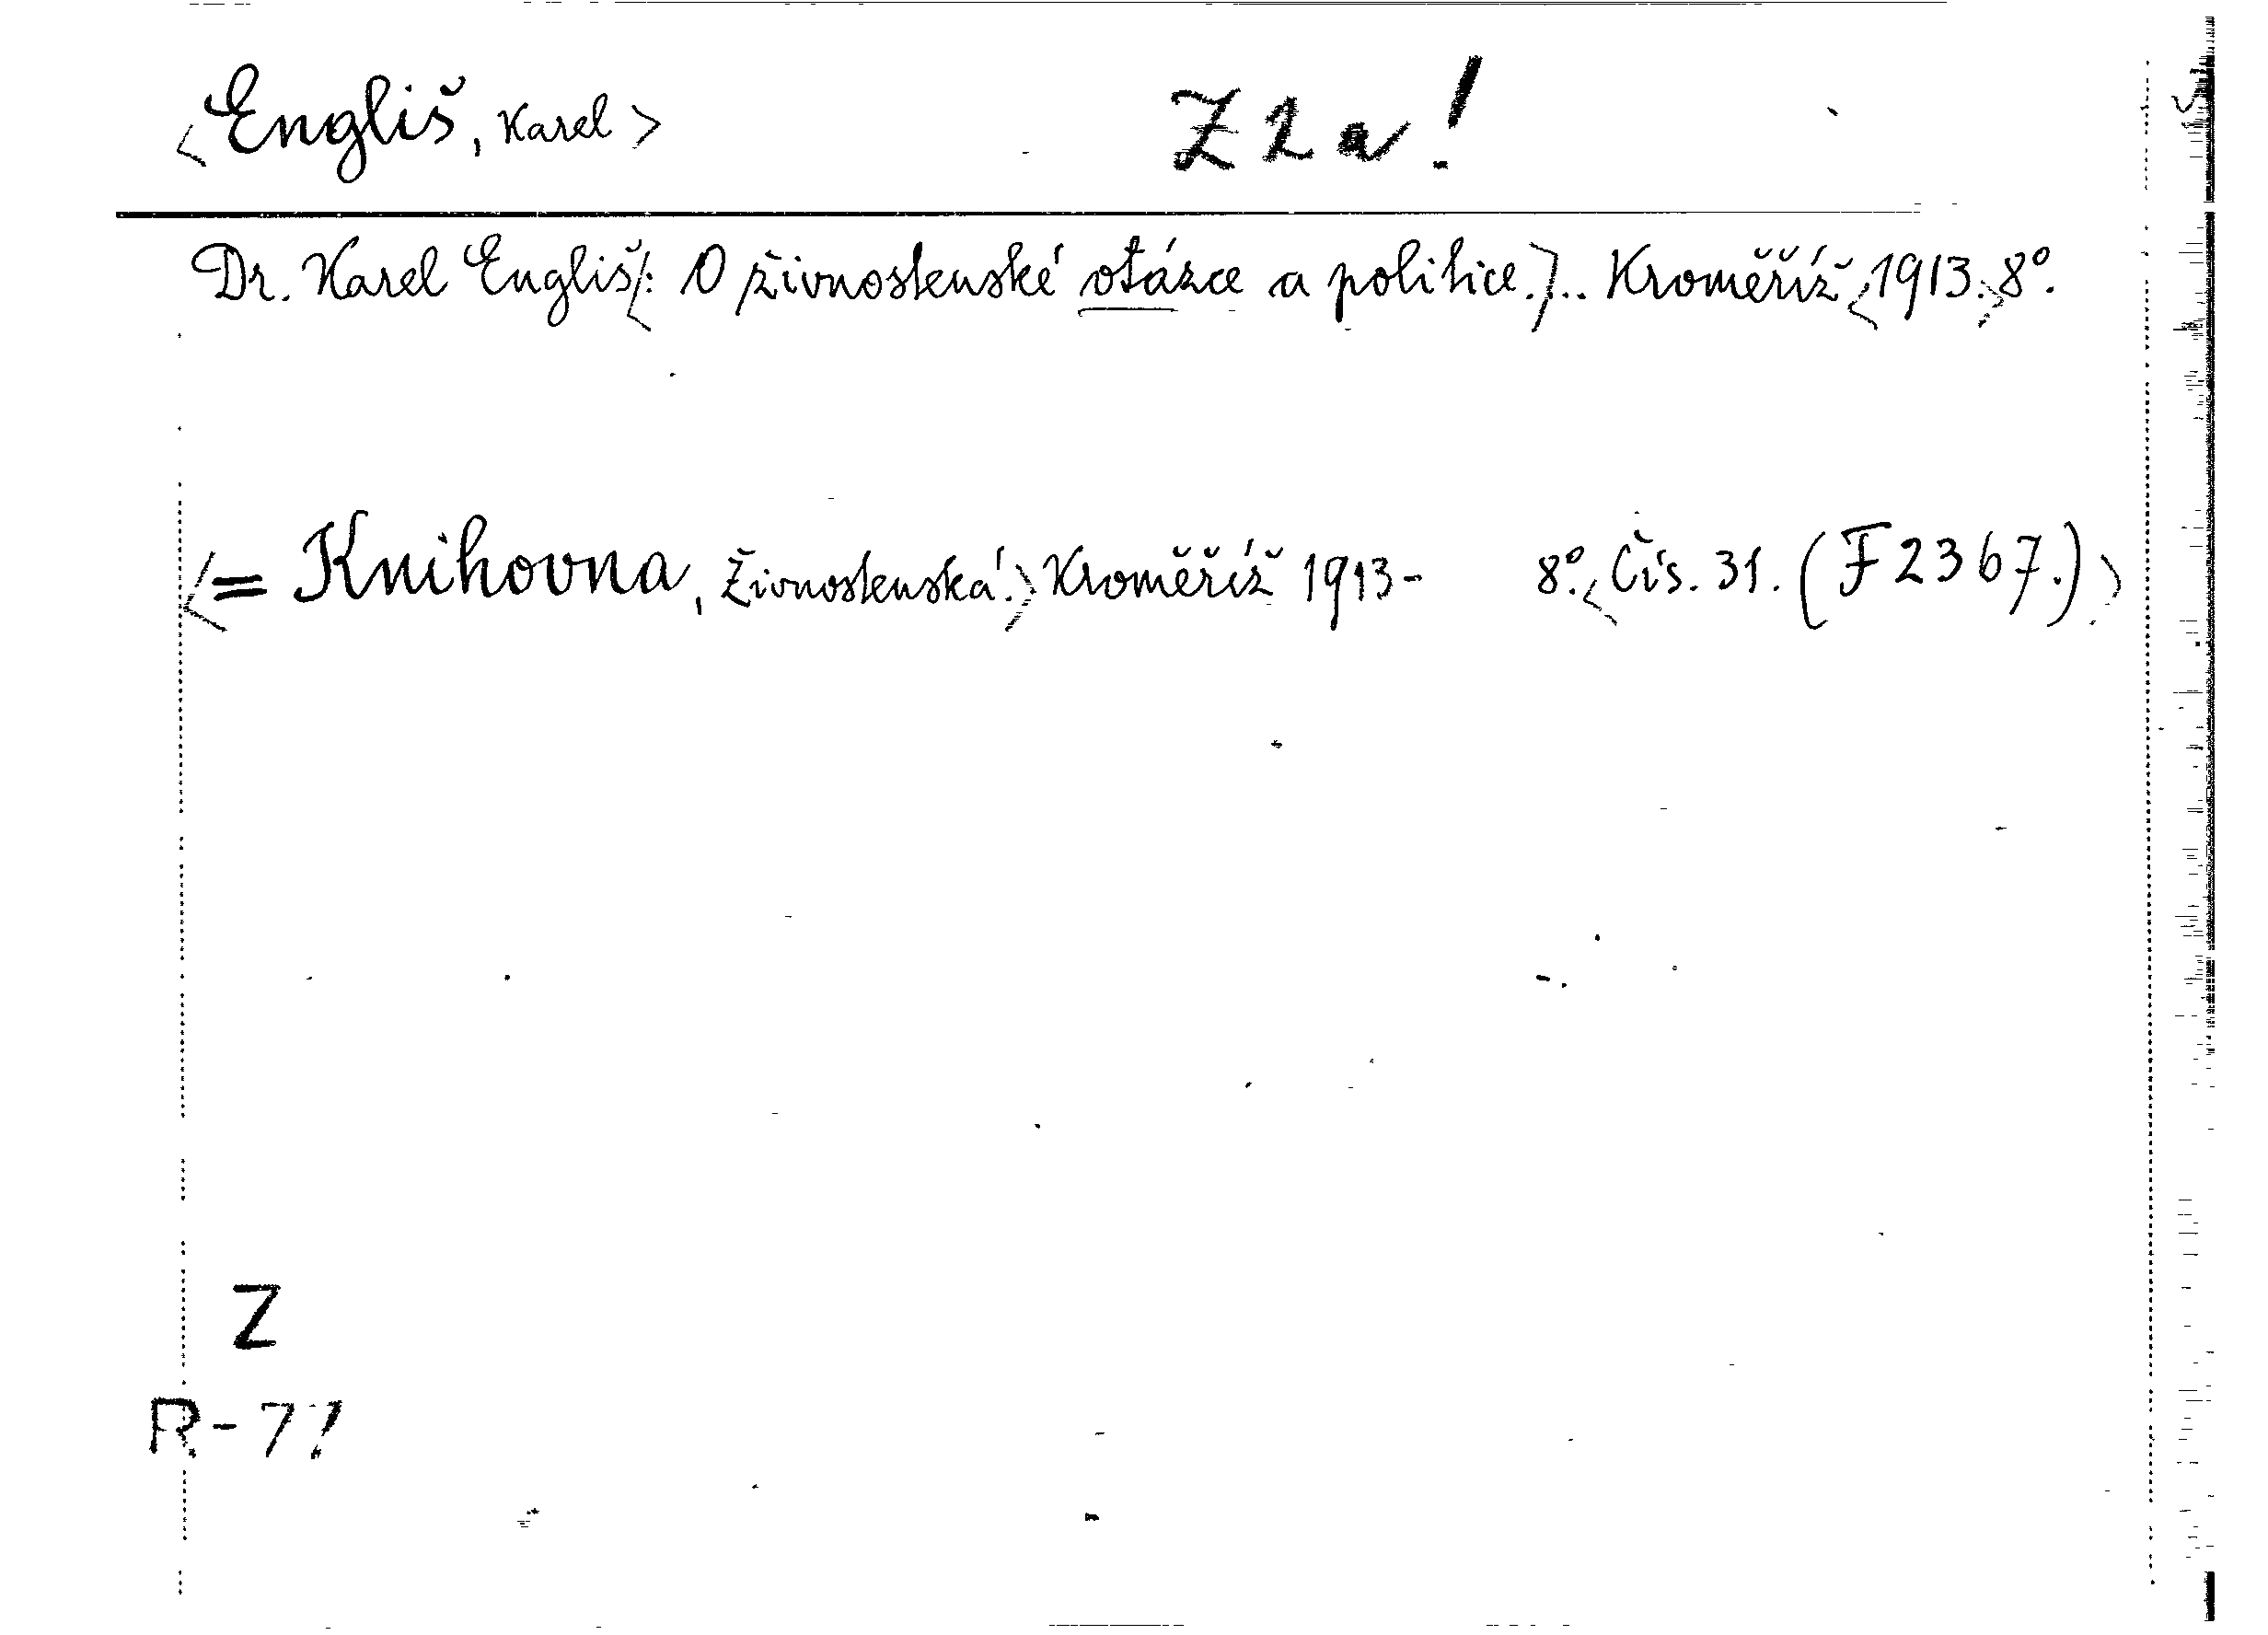 <Engliš, Karel> Z 2 a!
Dr. Karel Engliš<: O živnostenské otázce a politice.>.. Kroměříž <1913.> 8º.
<= Knihovna, Živnostenská.> Kroměříž 1913- 8º. <Čís. 31. (F 2367.)>
Z
R-77